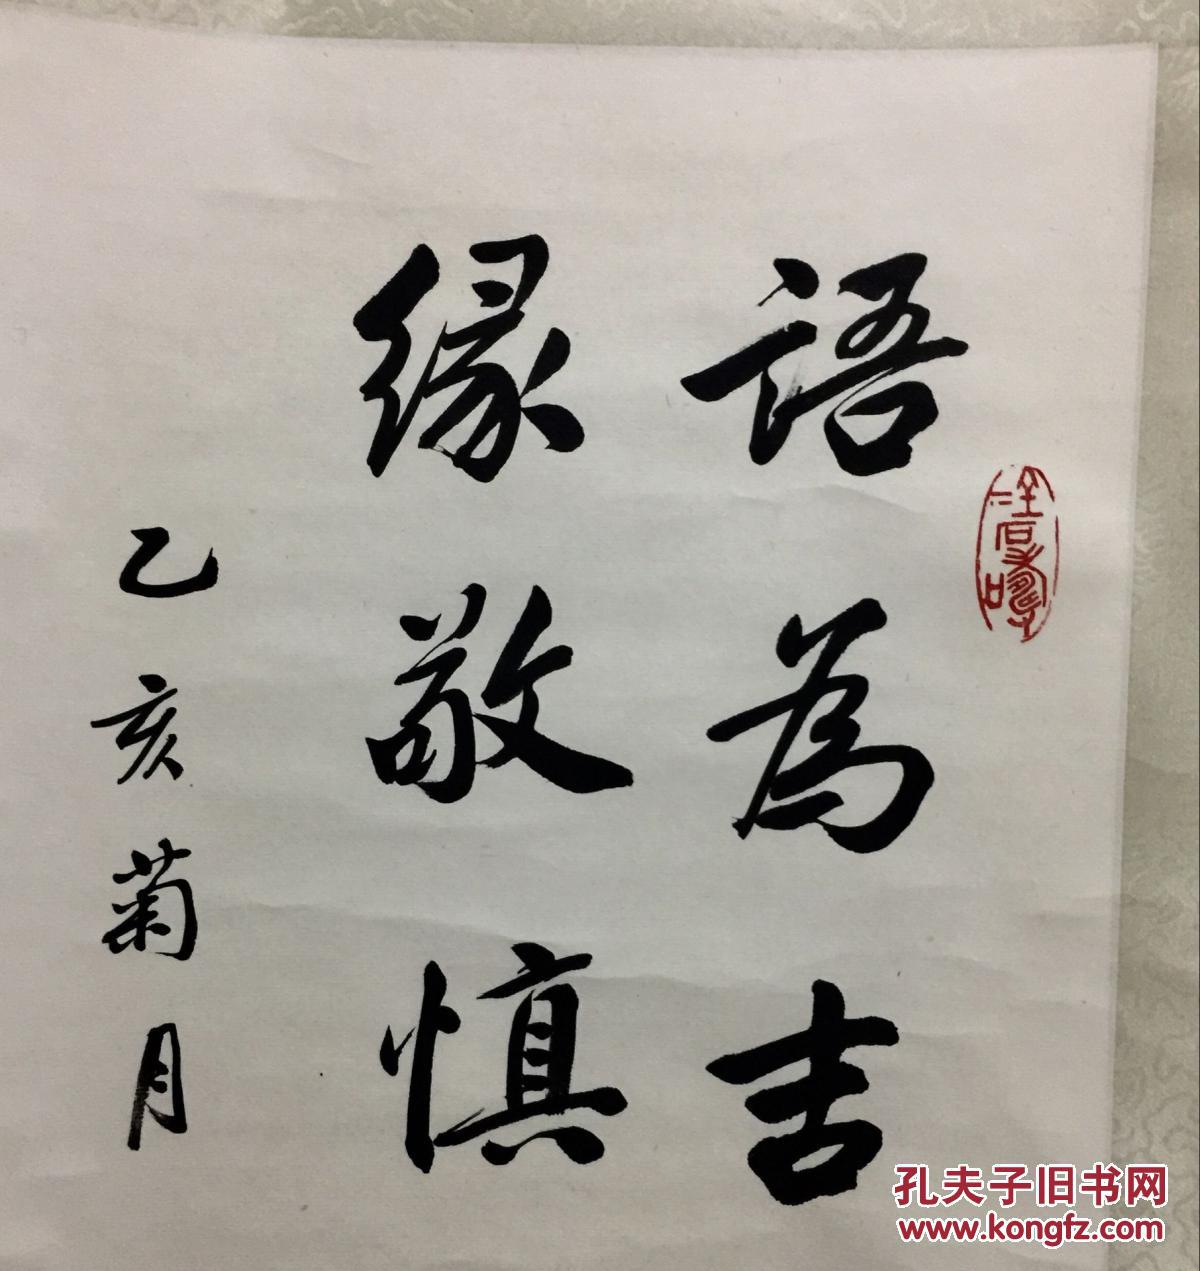 語為吉
緣敬慎
乙亥菊月
孔夫子旧书网
www.kongfz.com